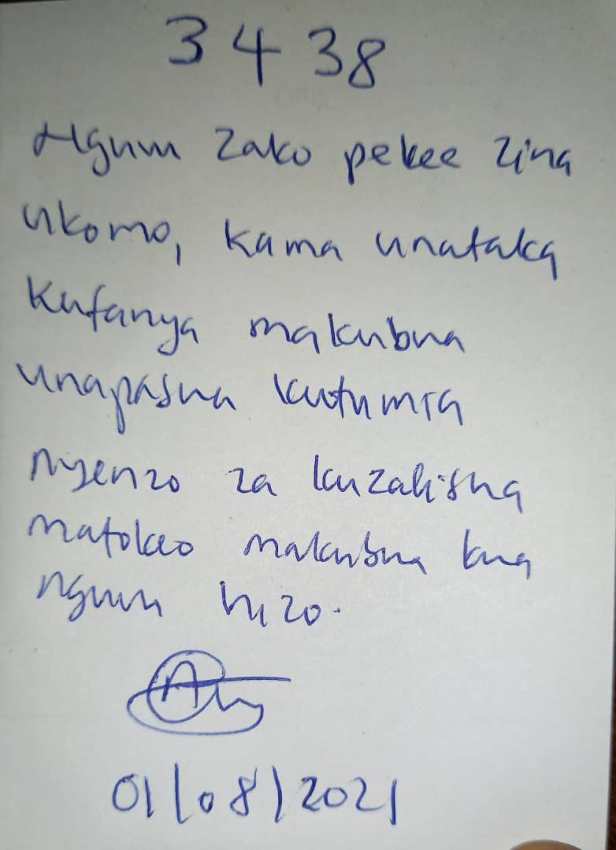 3438
Nguvu zako pekee zina
ukomo, kama unataka
kufanya makubwa
unapaswa kutumia
nyenzo za kuzalisha
matokeo makubwa kwa
nguvu hizo.
01/08/2021